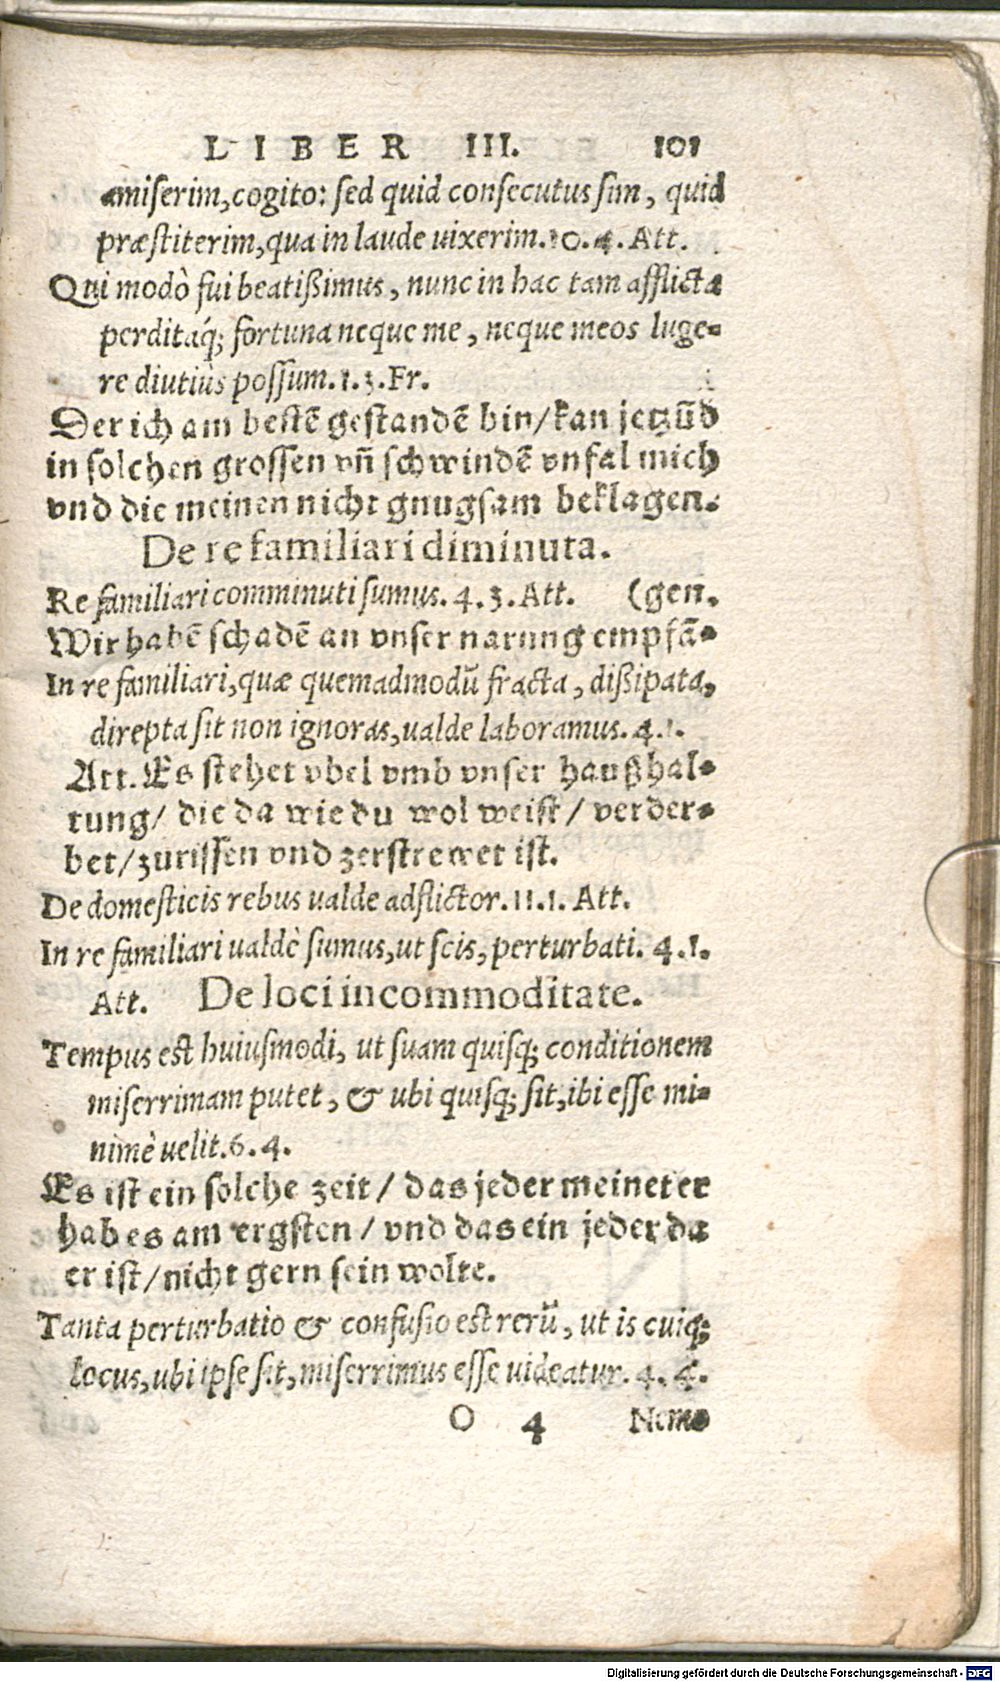 LIBER III. 101
amiserim, cogito: sed quid consecutus sim, quid
præstiterim, qua in laude uixerim. 10. 4. Att.
Qui modò fui beatißimus, nunc in hac tam afflicta
perditáq; fortuna neque me, neque meos luge-
re diutiùs possum. 1. 3. Fr.
Der ich am bestē gestandē bin/ kan jetzūd
in solchen grossen vñ schwindē vnfal mich
vnd die meinen nicht gnugsam beklagen.
De re familiari diminuta.
Re familiari comminuti sumus. 4. 3. Att. (gen.
Wir habē schadē an vnser narung empfā-
In re familiari, quæ quemadmodū fracta, dißipata,
direpta sit non ignoras, ualde laboramus. 4. 1.
Att. Es stehet vbel vmb vnser haußhal-
tung/ die da wie du wol weist/ verder-
bet/ zurissen vnd zerstrewet ist.
De domesticis rebus ualde adflictor. 11. 1. Att.
In re familiari ualdè sumus, ut scis, perturbati. 4. 1.
Att. De loci incommoditate.
Tempus est huiusmodi, ut suam quisq; conditionem
miserrimam putet, & ubi quisq; sit, ibi esse mi-
nimè uelit. 6. 4.
Es ist ein solche zeit/ das jeder meinet er
hab es am ergsten/ vnd das ein jeder da
er ist/ nicht gern sein wolte.
Tanta perturbatio & confusio est rerū, ut is cuiq;
locus, ubi ipse sit, miserrimus esse uideatur. 4. 4.
O 4 Nemo
Digitalisierung gefördert durch die Deutsche Forschungsgemeinschaft - DFG